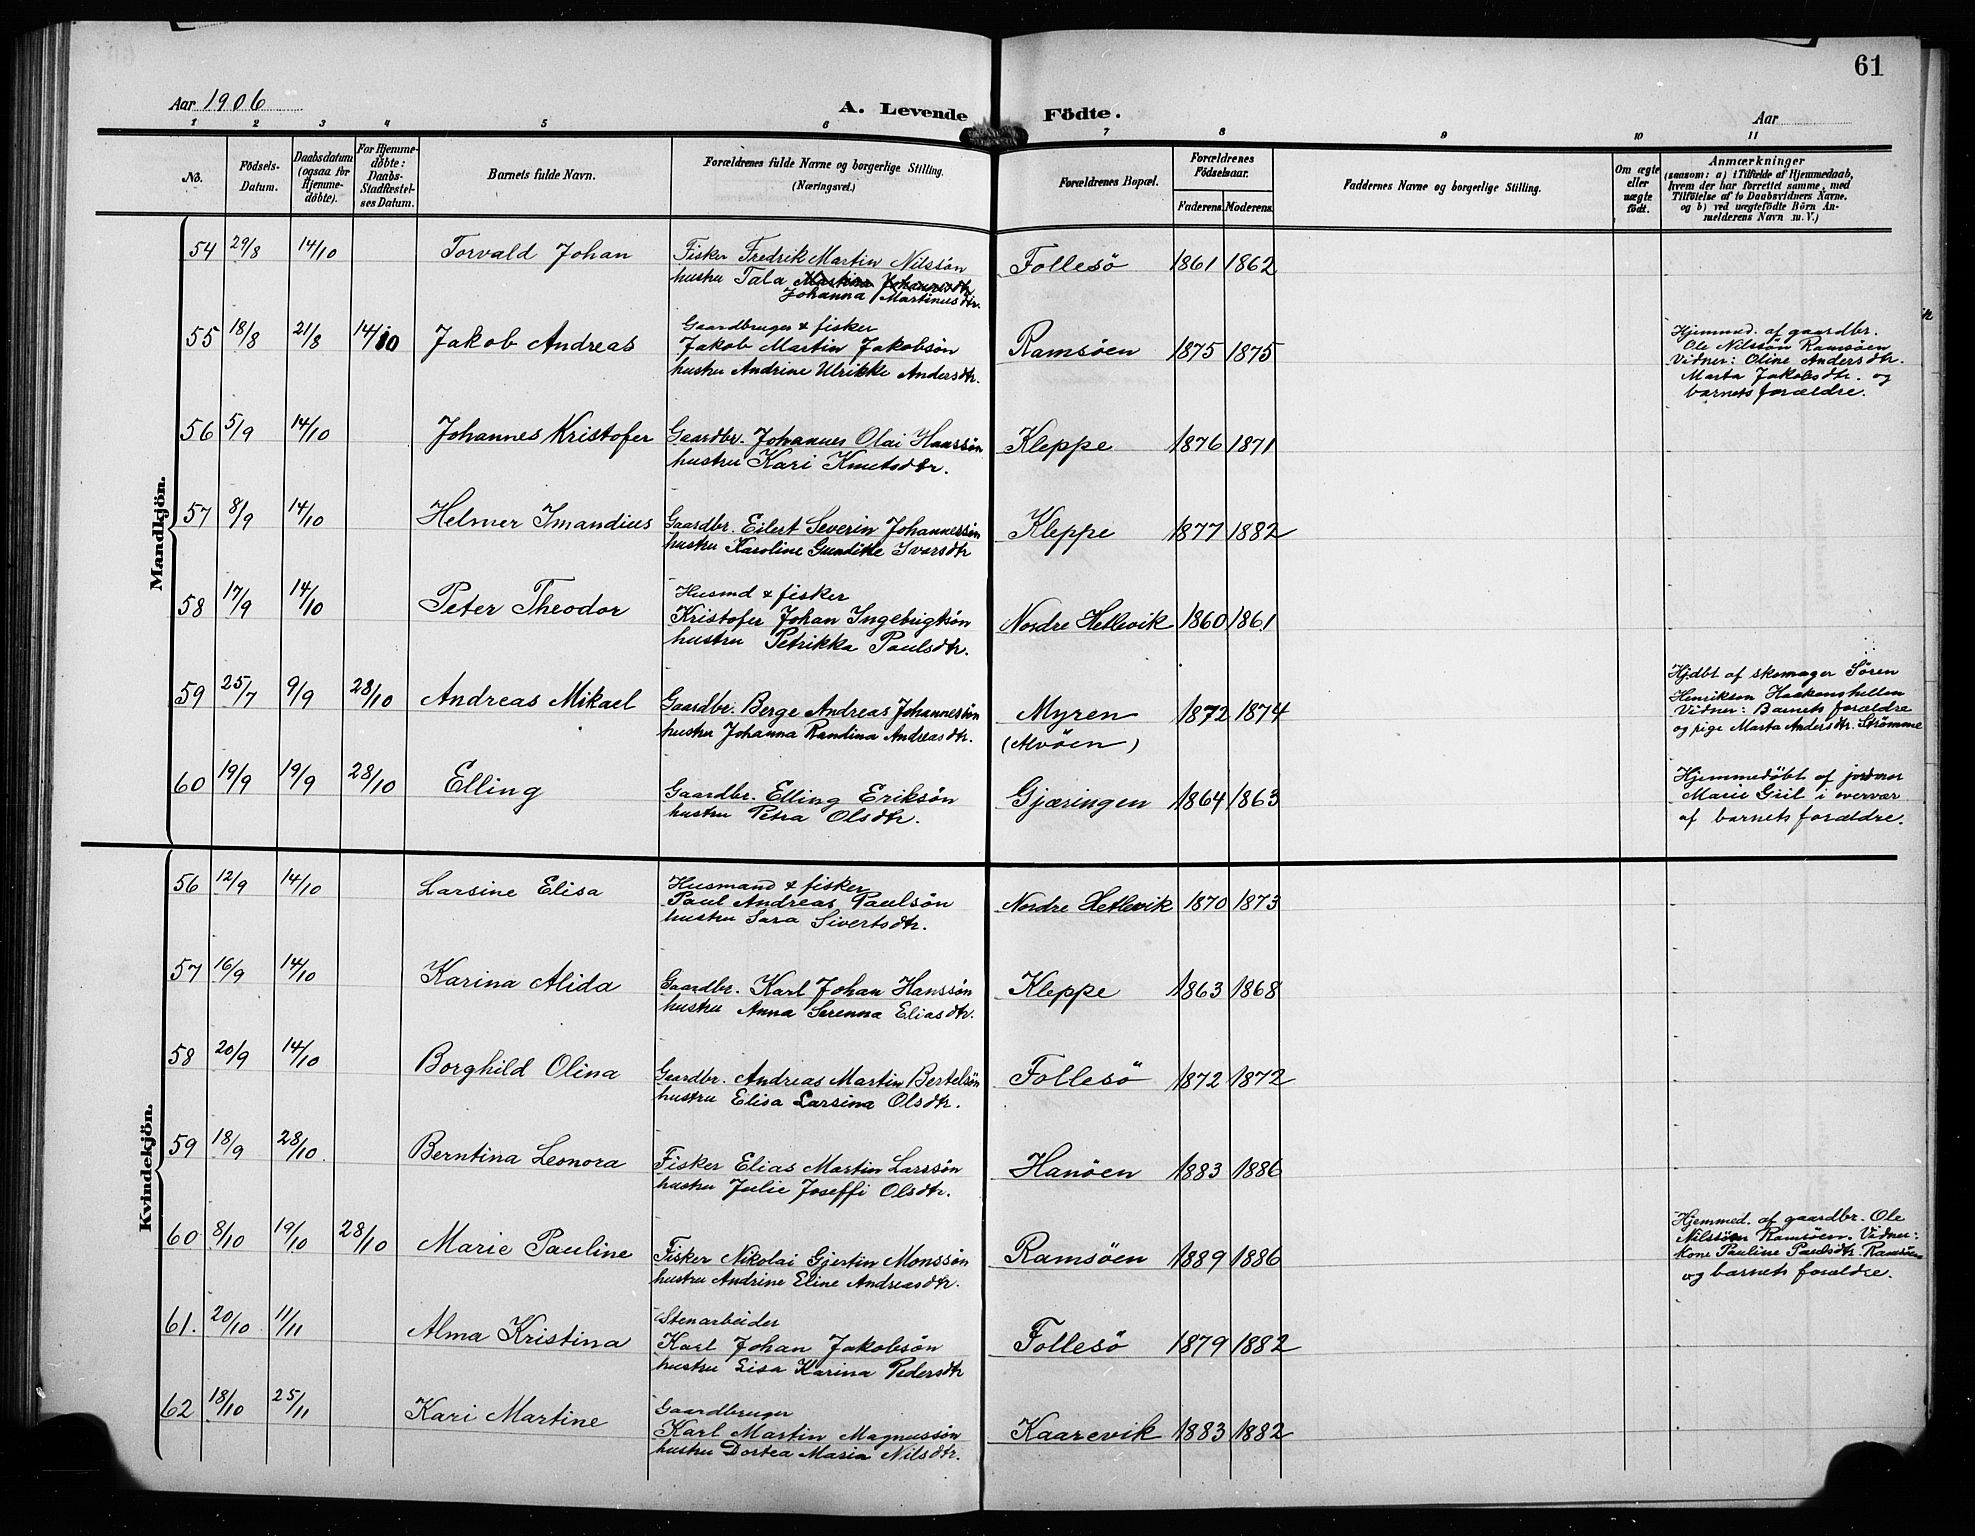 61
Aar 1906 A. Levende Födte. Aar
1 2 3 4 5 6 7 8 9 10 11
No. Födsels-Datum. Daabsdatum (ogsaa for Hjemme-döbte). For Hjemme-döbte: Daabs-Stadfæstel-ses Datum. Barnets fulde Navn. Forældrenes fulde Navne og borgerlige Stilling. (Næringsvei.) Forældrenes Bopæl. Forældrenes Födselsaar. Faderens. Moderens. Faddernes Navne og borgerlige Stilling. Om ægte eller uægte födt. Anmærkninger (saasom: a) i Tilfælde af Hjemmedaab, hvem der har forrettet samme, med Tilföielse af to Daabsvidners Navne. og b) ved uægtefödte Börn An-melderens Navn m. V.)
Mandkjön.
54 29/8 14/10 Torvald Johan Fisker Fredrik Martin Nilssön Follesö 1861 1862
hustru Tala Martina Johannesdtr
Johanna Martinusdtr.
55 18/8 21/8 14/10 Jakob Andreas Gaardbruger & fisker
Jakob Martin Jakobsön Ramsöen 1875 1875
hustru Andrine Ulrikke Andersdtr.
Hjemmed. af gaardbr.
Ole Nilssön Ramsöen
Vidner: Oline Andersdtr.
Marta Jakobsdtr. og
barnets forældre.
56 5/9 14/10 Johannes Kristofer Gaardbr. Johannes Olai Hanssön Kleppe 1876 1871
hustru Kari Knutsdtr.
57 8/9 14/10 Helmer Imandius Gaardbr. Eilert Severin Johannessön Kleppe 1877 1882
hustru Karoline Gunditte Ivarsdtr
58 17/9 14/10 Peter Theodor Husmd & fisker
Kristofer Johan Ingebrigtsön Nordre Hetlevik 1860 1861
hustru Petrikka Paulsdtr.
59 25/7 9/9 28/10 Andreas Mikael Gaardbr. Berge Andreas Johannessön Myren 1872 1874
hustru Johanna Randina Andreasdtr. (Alvöen)
Hjdbt af skomager Sören
Henrikson Haakonshellen
Vidner: Barnets forældre
og pige Marta Andersdtr. Strömme
60 19/9 19/9 28/10 Elling Gaardbr. Elling Eriksön Gjæringen 1864 1863
hustru Petra Olsdtr.
Hjemmedöbt af jordmor
Marie Gril i overvær
af barnets forældre.
Kvindekjön.
56 12/9 14/10 Larsine Elisa Husmand & fisker
Paul Andreas Paulsön Nordre Hetlevik 1870 1873
hustru Sara Sivertsdtr.
57 16/9 14/10 Karina Alida Gaardbr. Karl Johan Hanssön Kleppe 1863 1868
hustru Anna Serenna Eliasdtr.
58 20/9 14/10 Borghild Olina Gaardbr. Andreas Martin Bertelsön Follesö 1872 1872
hustru Elisa Larsina Olsdtr.
59 18/9 28/10 Berntina Leonora Fisker Elias Martin Larssön Hanöen 1883 1886
hustru Julie Joseffi Olsdtr.
60 8/10 19/10 28/10 Marie Pauline Fisker Nikolai Gjertin Monssön Ramsöen 1889 1886
hustru Andrine Eline Andreasdtr.
Hjemmed. af gaardbr. Ole
Nilssön Ramsöen. Vidner:
Kone Pauline Paulsdtr. Ramsöen
og barnets forældre.
61. 20/10 11/11 Alma Kristina Stenarbeider
Karl Johan Jakobsön Follesö 1879 1882
hustru Lisa Karina Pedersdtr
62 18/10 25/11 Kari Martine Gaardbruger
Karl Martin Magnussön Kaarevik 1883 1882
hustru Dortea Maria Nilsdtr.